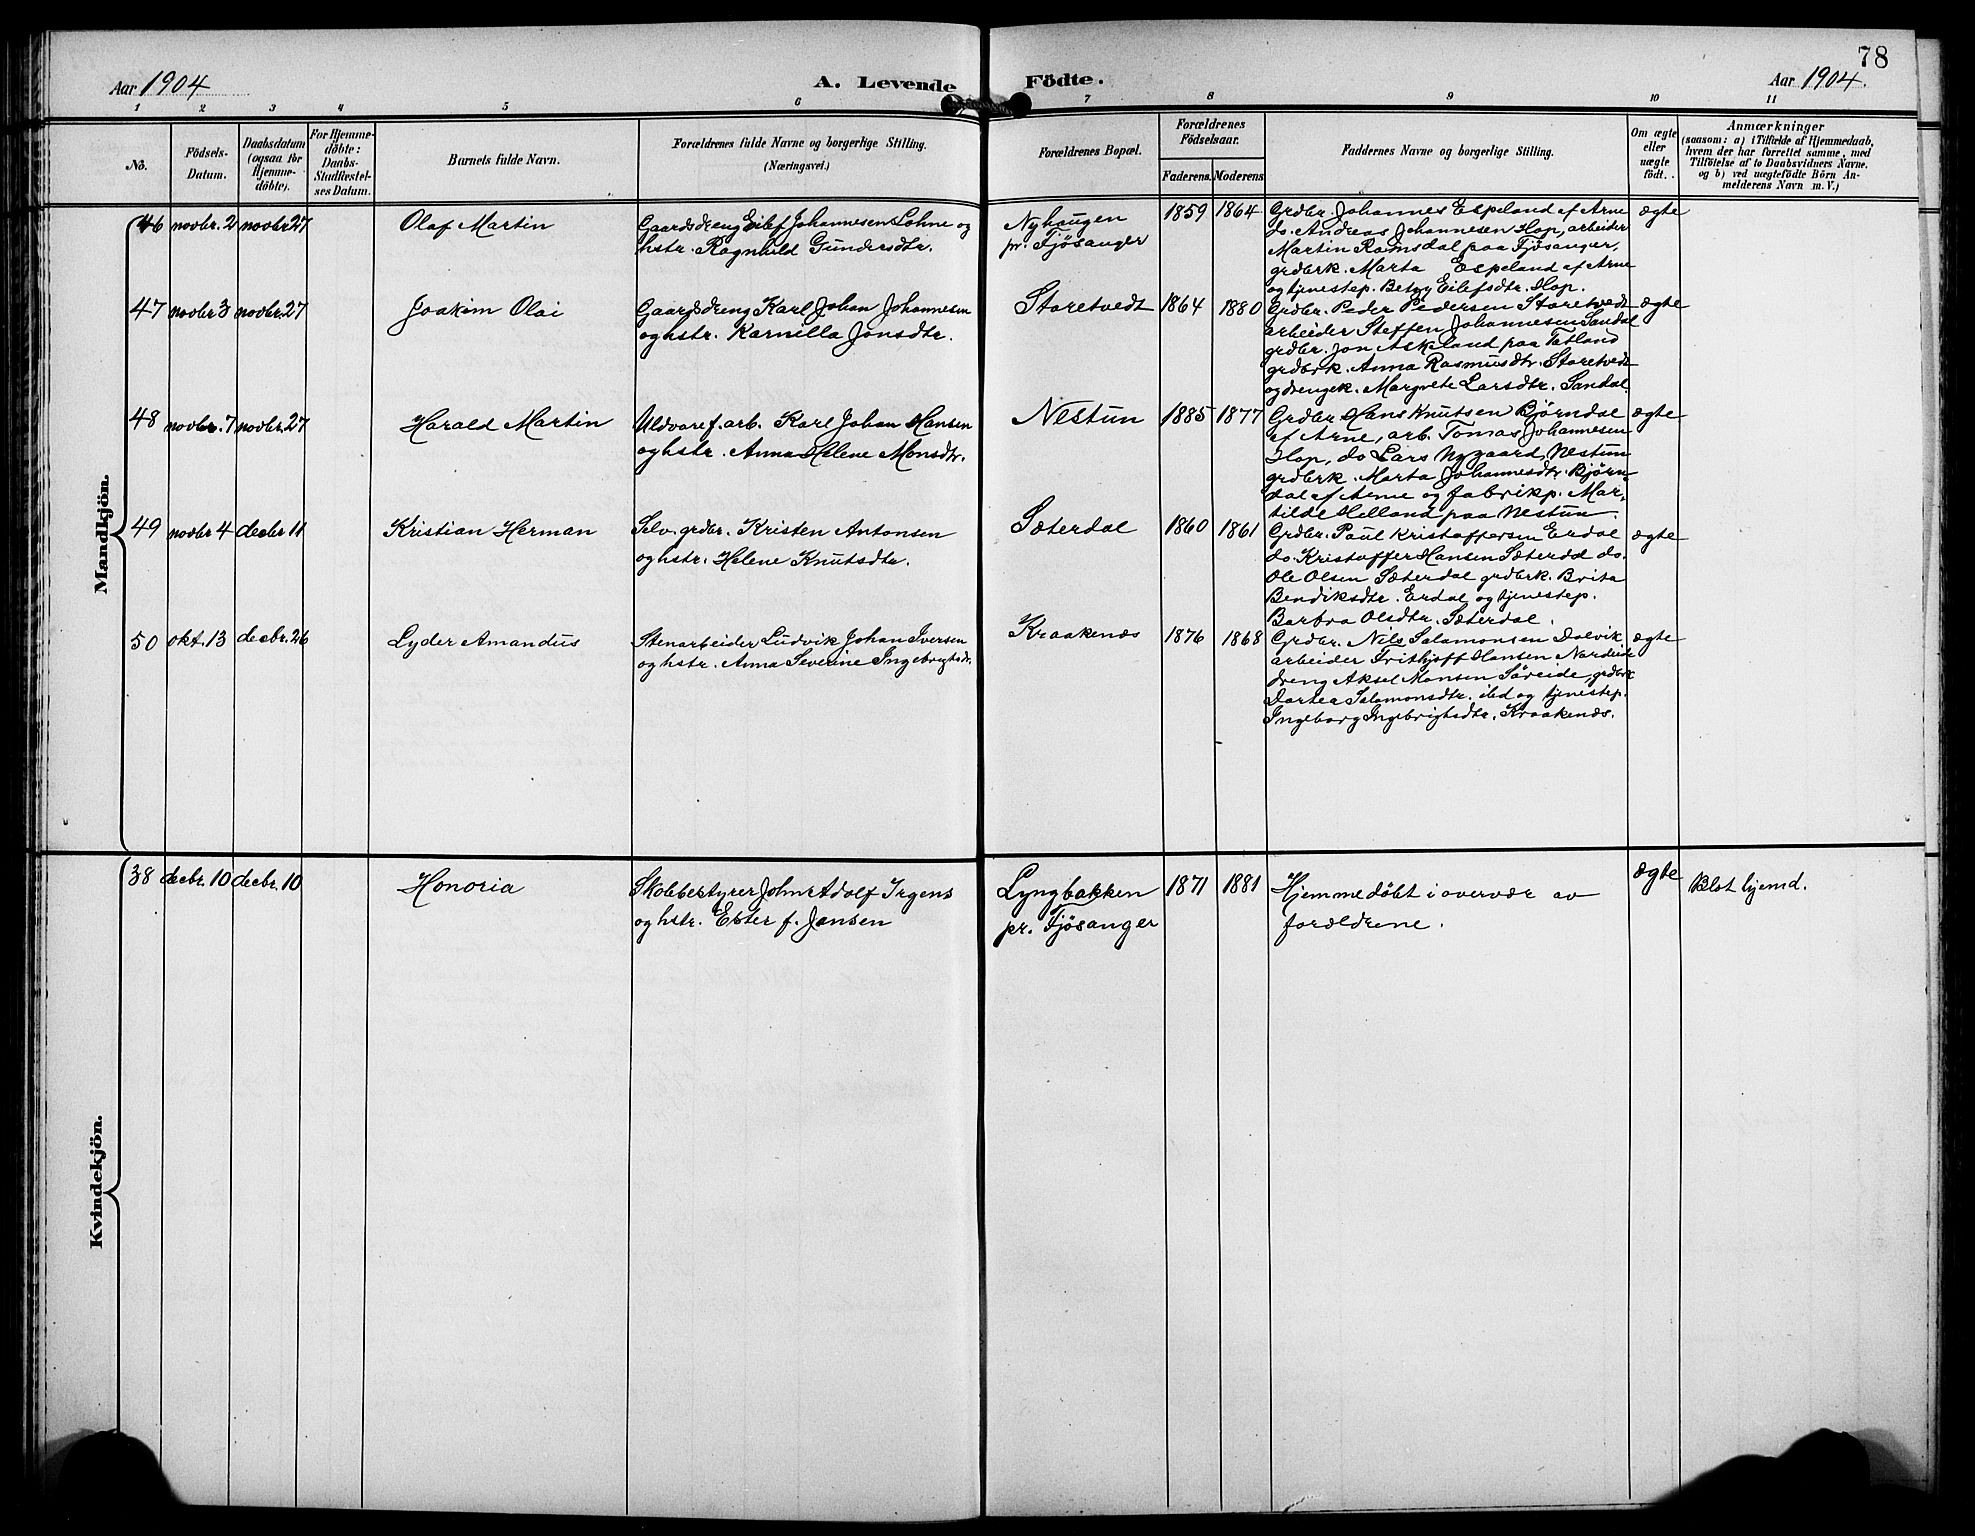 78
Aar 1904 A. Levende Födte. Aar 1904.
1 2 3 4 5 6 7 8 9 10 11
No.
Födsels-
Datum.
Daabsdatum
(ogsaa for
Hjemme-
döbte).
For Hjemme-
döbte:
Daabs-
Stadfæstel-
ses Datum.
Barnets fulde Navn.
Forældrenes fulde Navne og borgerlige Stilling.
(Næringsvei.)
Forældrenes Bopæl.
Forældrenes
Födselsaar.
Faderens. Moderens
Faddernes Navne og borgerlige Stilling.
Om ægte
eller
uægte
födt.
Anmærkninger
(saasom: a) i Tilfælde af Hjemmedaab,
hvem der har forrettet samme, med
Tilföielse af to Daabsvidners Navne.
og b) ved uægtefödte Börn An-
melderens Navn m. V.)
Mandkjön.
46 novbr. 2 novbr. 27 Olaf Martin
Gaardsdreng Eilef Johannesen Lohne og
hstr. Ragnhild Gundersdtr.
Nyhaugen
pr. Fjösanger
1859 1864
Grdbr. Johannes Espeland af Arne
do. Andreas Johannesen Hop, arbeider
Martin Ramsdal paa Fjösanger,
grdbrk. Marta Espeland af Arne
og tjenestep. Betsy Eilefsdtr. Hop.
ægte
47 novbr 3 novbr. 27 Joakim Olai
Gaardsdreng Karl Johan Johannesen
og hstr. Kamilla Jonsdtr.
Storetvedt
1864 1880
Grdbr. Peder Pedersen Storetvedt
arbeider Steffen Johannesen Sandal
grdbr. Jon Askeland paa Tatland
grdbrk. Anna Rasmusdtr. Storetvedt
og drengek. Margrete Larsdtr. Sandal.
ægte
48 novbr. 7 novbr. 27 Harald Martin
Uldvaref. arb. Karl Johan Hansen
og hstr. Anna Helene Monsdtr.
Nestun
1885 1877
Grdbr Hans Knutsen Björndal
af Arne, arb. Tomas Johannesen
Hop, do Lars Nygaard, Nestun
grdbrk. Marta Johannesdtr. Björn-
dal af Arne og fabrikp. Mar-
tilde Helland paa Nestun.
ægte
49 novbr 4 decbr 11 Kristian Herman
Selv. grdbr. Kristen Antonsen
og hstr. Helene Knutsdtr.
Sæterdal
1860 1861
Grdbr. Paul Kristoffersen Erdal
do. Kristoffer Hansen Sæterdal do.
Ole Olsen Sæterdal grdbrk. Brita
Bendiksdtr. Erdal og tjenestep.
Barbra Olsdtr. Sæterdal.
ægte
50 okt. 13 decbr. 26 Lyder Amandus
Stenarbeider Ludvik Johan Iversen
og hstr. Anna Severine Ingebrigtsdr.
Kraakenæs
1876 1868
Grdbr. Nils Salamonsen Dalvik
arbeider Frithjoff Hansen Nordeide
dreng Aksel Monsen Söreide, grdbrk
Dortea Salamonsdtr. ibd og tjenestep.
Ingeborg Ingebrigtsdtr. Kraakenæs.
ægte
Kvindekjön.
38 decbr. 10 decbr. 10 Honoria
Skolebestyrer John Adolf Irgens
og hstr. Ester f. Jansen
Lyngbakken
pr. Fjösanger
1871 1881
Hjemmedöbt i overvær av
forældrene.
ægte
Blot hjemd.